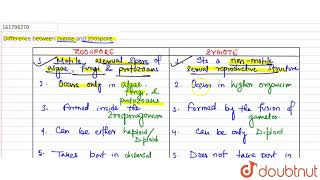 161798270
Difference between zygote and zoospore.
ZOOSPORE
ZYGOTE
1. Motile asexual spore of
algae, fungi & protozoans
1. It's a non-motile
sexual reproductive structure
2. Occurs only in algae,
fungi, &
protozoans
2. Occurs in higher organism
3. Formed inside the
Zoosporangium
3. Formed by the fusion of
gametes.
4. Can be either haploid/
Diploid
4. Can be only Diploid
5. Takes part in dispersal
5. Does not take part in
doubtnut